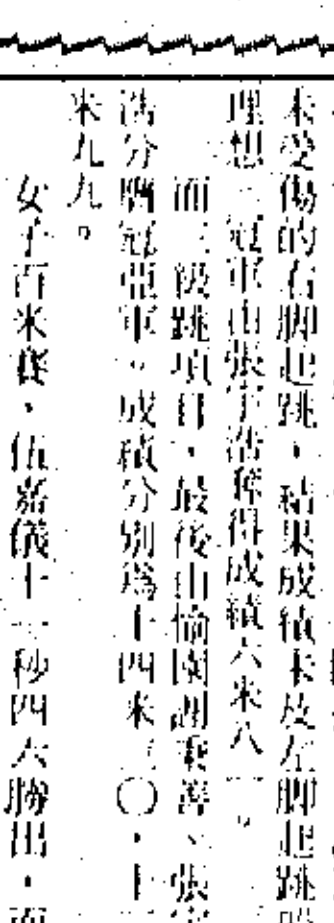 未受傷的右脚起跳，結果成績未及左脚起跳
理想。冠軍由張宇浩奪得成績六米八一。
而三級跳項目，最後由愉園謝秉善、張
浩分膺冠亞軍。成績分別爲十四米三〇，十
米九九。
女子百米賽，伍嘉儀十二秒四六勝出，而